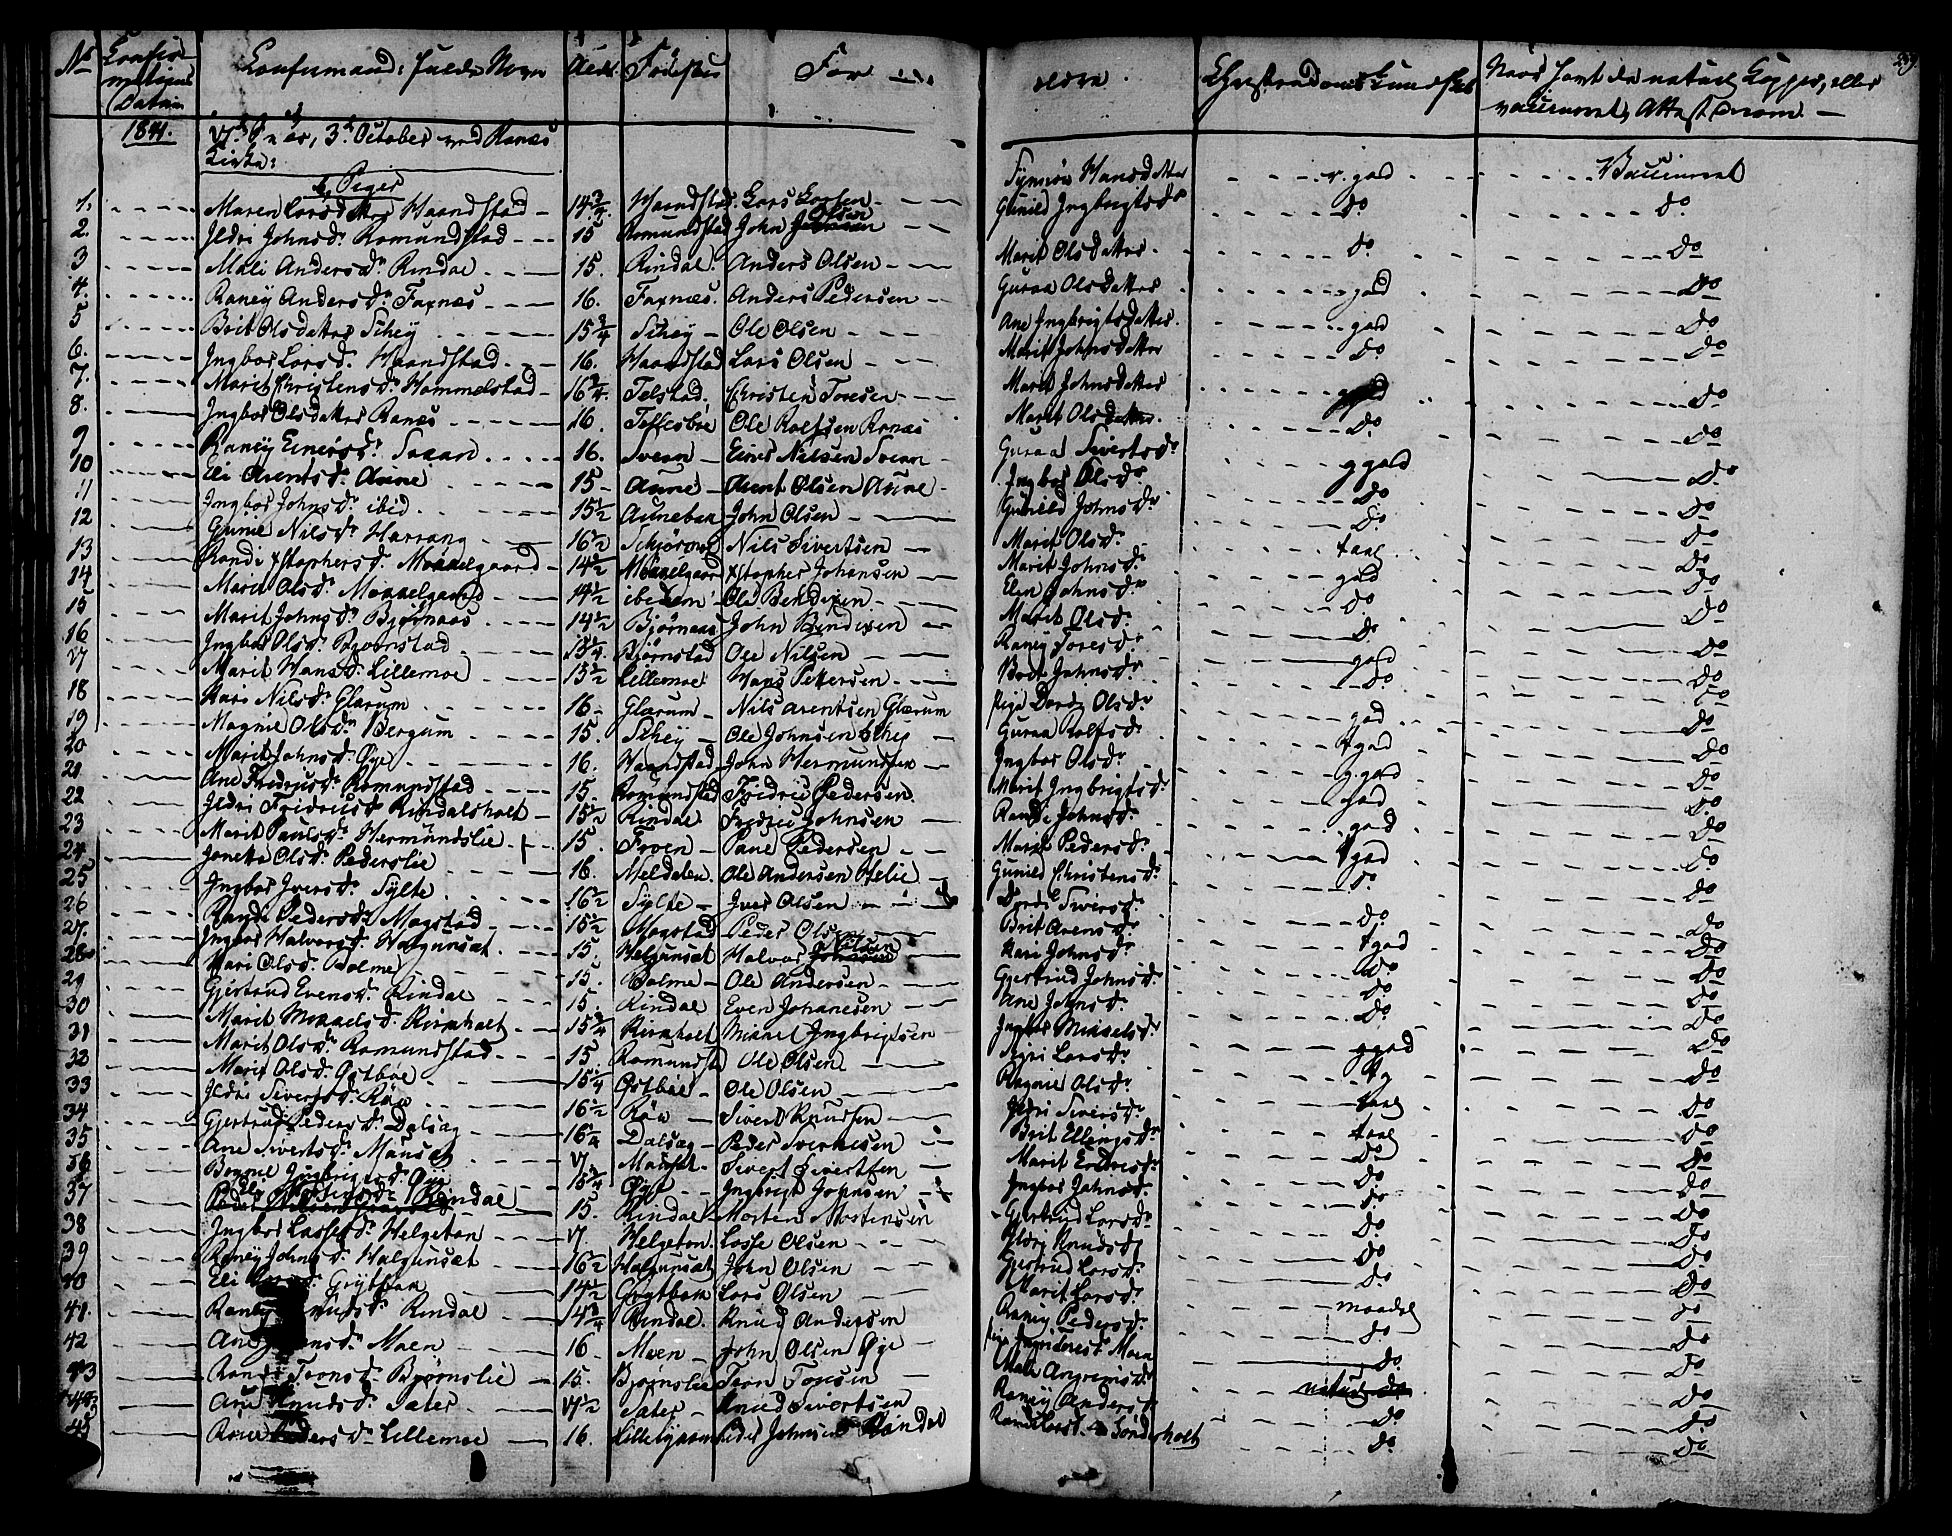 No Confirmations Datum Confirmand: fulde Navn Alder Fødested For ældre Christendoms Kundskab Naar havt de naturl Kopper, eller vaccineret, Attest derom. 239
1841. 3d October ved Ranæs Kirke:
Piger
1. Maren Larsdatter Haandstad 14 3/4 Haandstad Lars Larsen Synnøv Hansdatter v. god Vaccineret
2. Ildri Johnsdr Romundstad 15 Romundstad John Olsen Gunild Ingbrigtsdr do do
3 Mali Andersdr Rindal 15. Rindal. Anders Olsen Marit Olsdatter do do
4. Raney Andersdr Foxnæs 16. Foxnæs. Anders Pedersen Guraa Olsdatter god do
5 Brit Olsdatter Schey 15 3/4 Schey Ole Olsen Ane Ingbrigtsdatter god do
6. Ingbor Larsd. Haandstad 16. Haandstad Lars Olsen Marit Johnsdatter do do
7. Marit Christensdr Hammelstad 16 3/4 Telstad. Christen Toresen Marit Johnsdatter god do
8. Ingbor Olsdatter Ranæs 16. Ole Rolfsen Ranæs Marit Olsdatter do do
9 Raney Einersdr Svean 16. Svean Einer Nilsen Svean Guraa Sivertsdr ggod do
10 Eli Arentsdr Aune 15 Aune Arent Olsen Aune Ingbor Olsdr do do
11 Ingbor Johnsdr ibid 15 1/2 Aunebak John Olsen Gunild Johnsdr do do
12 Gunil Nilsdr Harrang 16 1/2 Nils Sivertsen Marit Olsdr taal do
13 Randi Xstophersdr Mokkelgaard 14 1/2 Mokkelgaard Xstopher Johansen Marit Johnsdr god do
14 Marit Olsdr Mokkelgaard 14 1/2 ibidem Ole Bendixen Elen Johnsdr do do
15 Marit Johnsdr Bjørnaas 14 1/2 Bjørnaas John Bendixen Marit Olsdr do do
16 Ingbor Olsdr Bjørnstad Bjørnstad Ole Nilsen Raney Toresdr god do
17 Marit Hansdr Lillemoe 15 1/2 Lillemoe Hans Pettersen Brit Johnsdr do do
18 Kari Nilsdr Glærum 16 Glærum Nils Arentsen Glærum Pige Dordi Olsdr god do
19 Magnil Olsdr Bergum 15. Schey Ole Johnsen Schey Guraa Rolfsdr tgod do
20 Marit Johnsdr Øye 16. Haandstad John Hermundsen Ingbor Olsdr ggod do
21 Ane Fredriksdr Romundstad 15. Romundstad Fridric Pedersen Marit Ingbrigtsdr god do
22 Ildri Fridricsdr Rindalsholt 15 1/2 Rindal Fredric Johnsen Randi Johnsdr god do
23 Marit Paulsdr Hermundslie 15. Froen Paul Pedersen Marit Pedersdr tgod do
24 Jonetta Olsdr Pederslie 16. Meldalen. Ole Andersen Helie Gunild Christensdr do do
25 Ingbor Iversdr Sylte 16 1/2 Sylte Iver Olsen Dordi Siversdr do do
26 Randi Pedersdr Magstad 15 1/2 Magstad Peder Olsen Brit Arensdr tgod do
27. Ingbor Halvorsdr Halgunsæt 15. Helgunsæt Halvor Nilsen Kari Johnsdr do do
28 Kari Olsdr Bolme 15. Bolme Ole Andersen Gjertrud Johnsdr do do
29 Gjertrud Evensdr Rindal 15. Rindal Even Johanesen Ane Johnsdr do do
30 Marit Mikkelsdr Kirkholt 15 3/4 Kirkholt Mikkel Ingbrigtsen Ingbor Mikkelsdr ggod do
31 Marit Olsdr Romundstad 15 Romundst Ole Olsen Sigri Larsdr tg do
32 Marit Olsdr Østbøe 15 1/4 Østbøe Ole Olsen Ragnil Olsdr taal do
33 Ildri Sivertsdr Røv 16 1/2 Røv Sivert Knudsen Ildri Siversdr taal do
34 Gjertrud Pedersdr Dalsæg 16 1/4 Dalsæg Peder Sverkesen Brit Ellingsdr do do
35 Ane Sivertsdr Mausæt 17. Mausæt Sivert Sivertsen Marit Endresdr do do
36 Ingbrigtsdr Øye 15 3/4 Øye Ingbrigt Johnsen Ingbor Johnsdr do do
37 Rindal 15. Rindal Morten Mortensen Gjertrud Larsdr do do
38 Ingbor Lassesdr Helgeton 17 Helgeton. Lasse Olsen Ildri Knudsd do do
39 Raney Johnsdr Halgunsæt 16 1/2 Halgunsæt John Olsen Gjertrud Larsdr do do
40 Eli Grytbak 14 1/2 Grytbak Lars Olsen Marit Larsdr maadel do
41. Raney Knudsdr Rindal 14 3/4 Rindal. Knud Andersen Raney Pedersdr do do
42 Ane Moen 16 Moen John Olsen Øye do do
43 Randi Toresdr Bjørnslie 15. Bjørnslie Tore Toresen do
44 Ane Knudsdr Sæter 17 1/2 Sæter Knud Sivertsen Raney Andersd do do
45 Pedersdr Lillemoe 16. Peder Johnsen Rindal Randi Larsd. Sønderholt do do